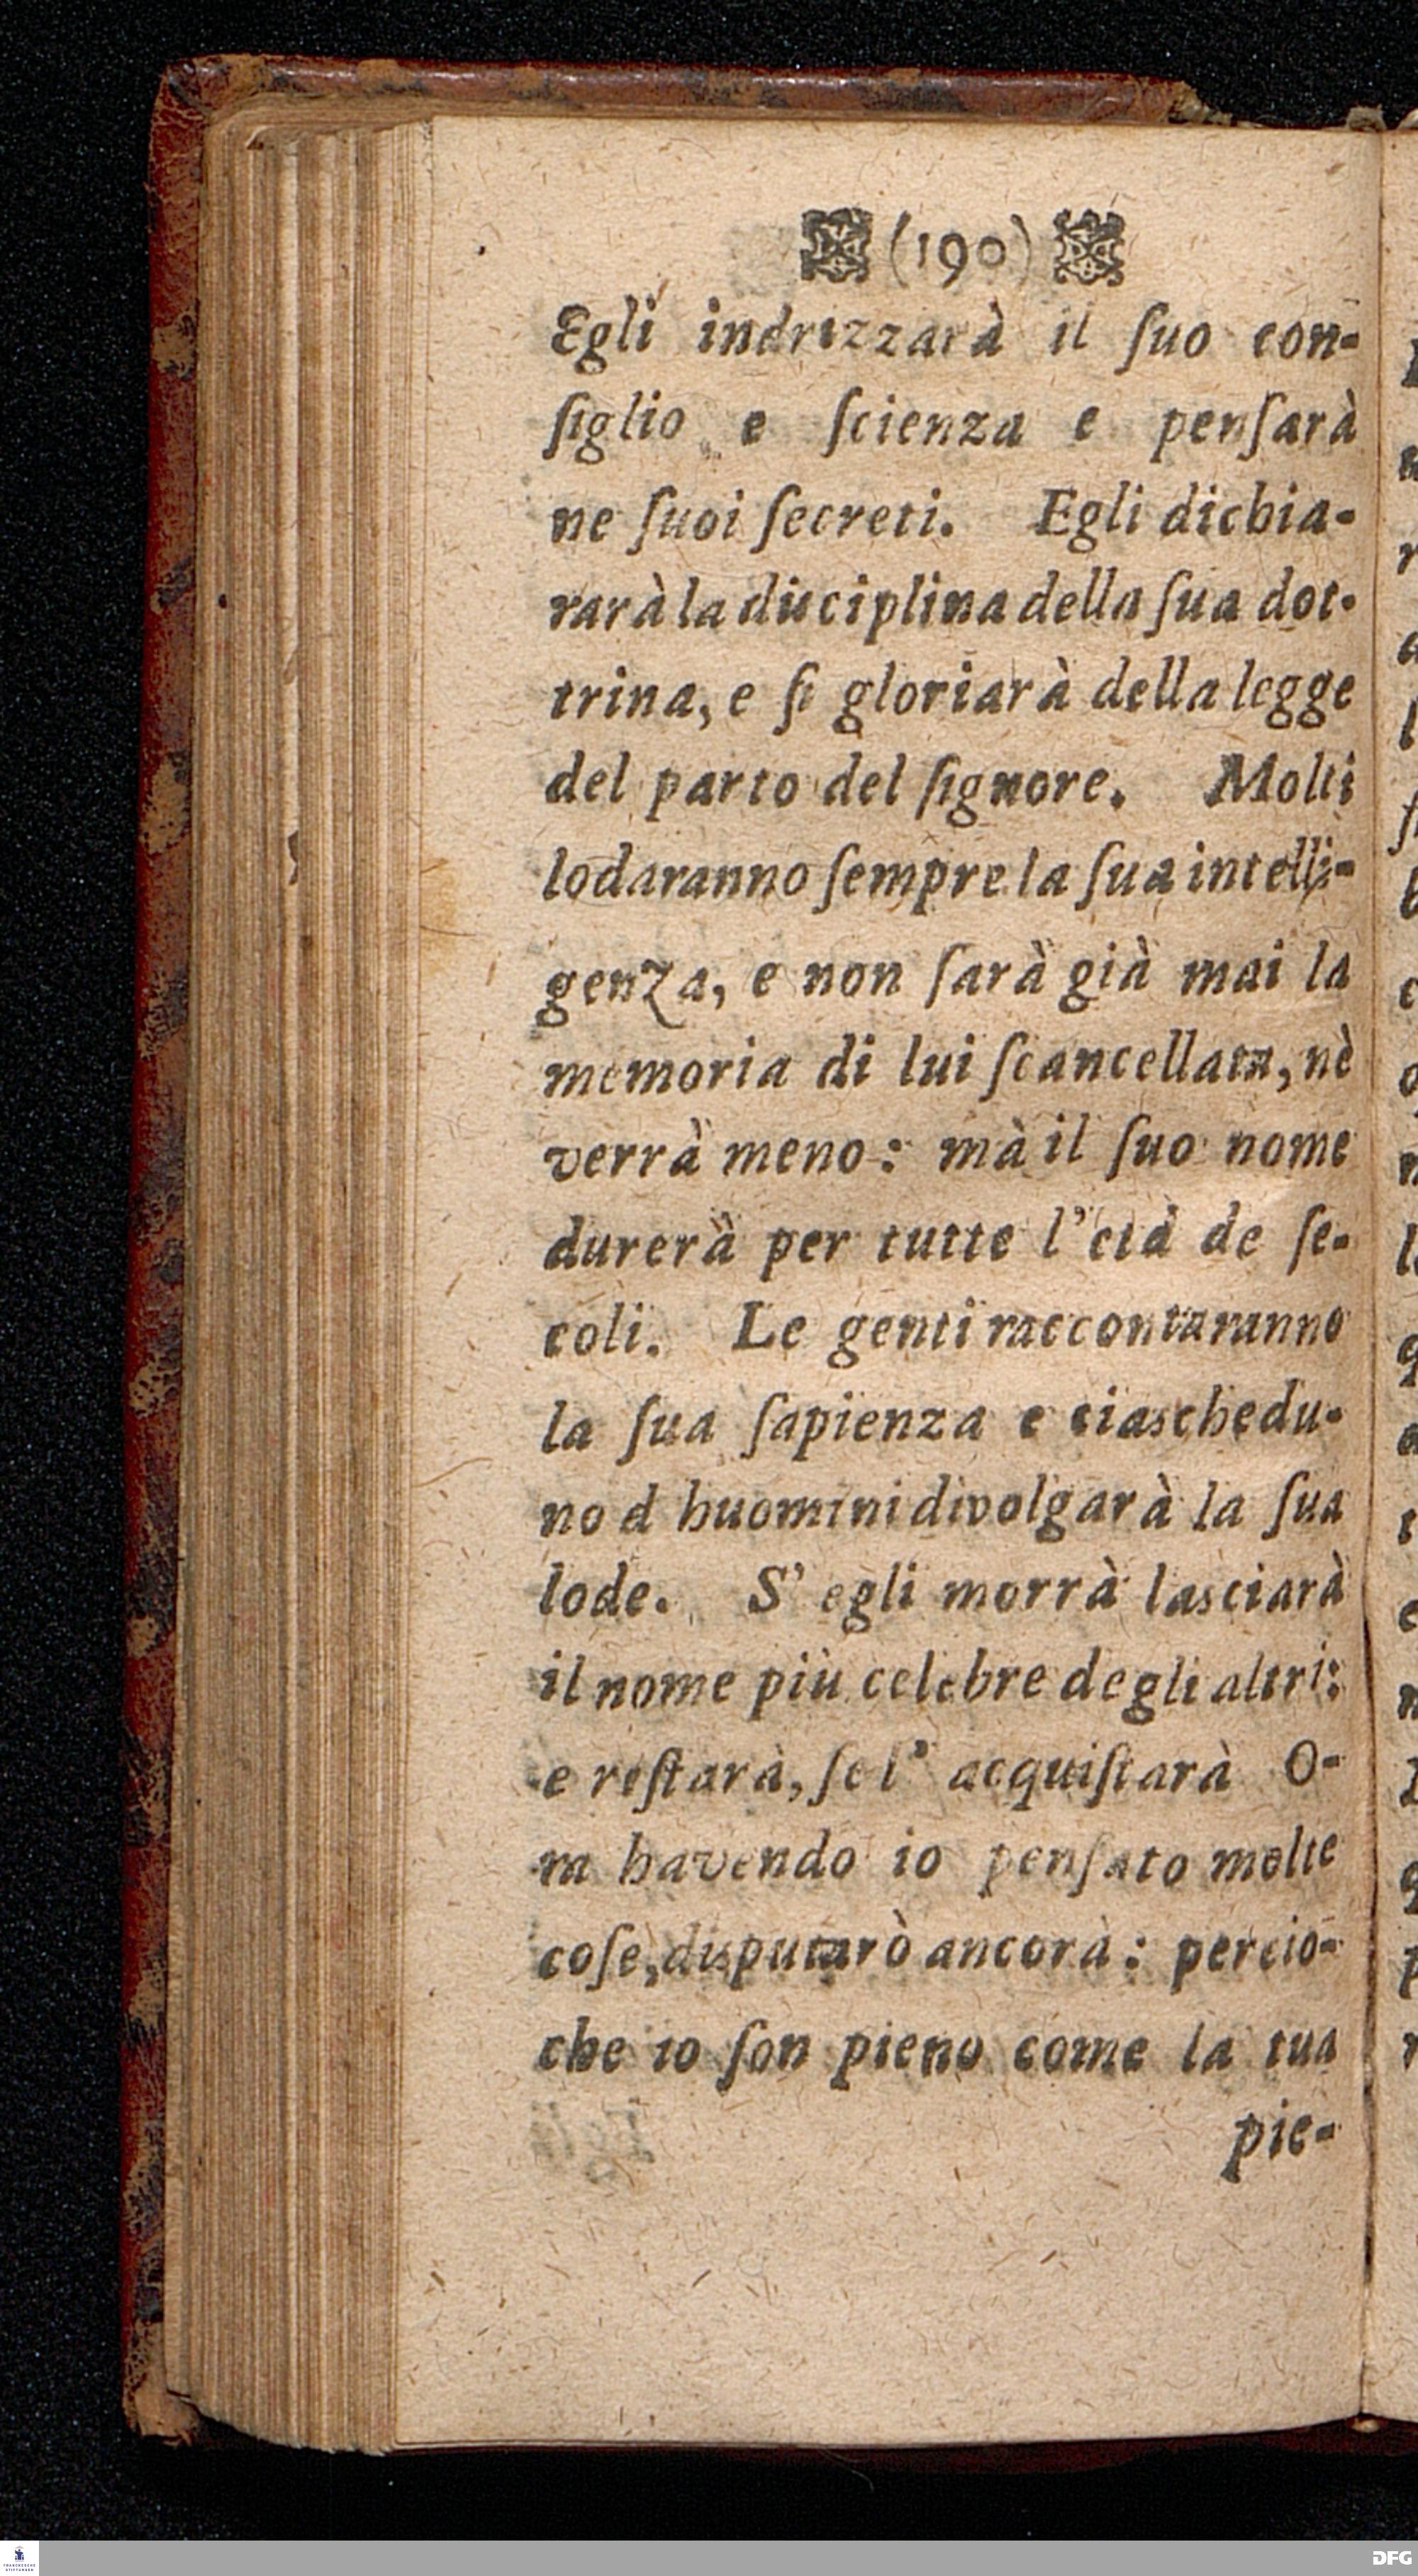 (190)
Egli indrizzarà il ſuo con-
ſiglio e ſcienza e penſarà
ne ſuoi ſecreti. Egli dichia-
rarà la disciplina della ſua dot-
trina, e ſi gloriarà della legge
del parto del ſignore. Molti
lodaranno ſempre la ſua intelli-
genza, e non ſarà già mai la
memoria di lui ſcancellata, nè
verrà meno: mà il ſuo nome
durerà per tutte l'età de ſe-
coli. Le genti raccontaranno
la ſua ſapienza e ciaschedu-
no d huomini divolgarà la ſua
lode. S' egli morrà lasciarà
il nome più celebre degli altri:
e reſtarà, ſe l' acquiſtarà O-
ra havendo io penſato molte
coſe, disputarò ancorà: percio-
che io ſon pieno come la tua
pie-
FRANCKESCHE
STIFTUNGEN
DFG